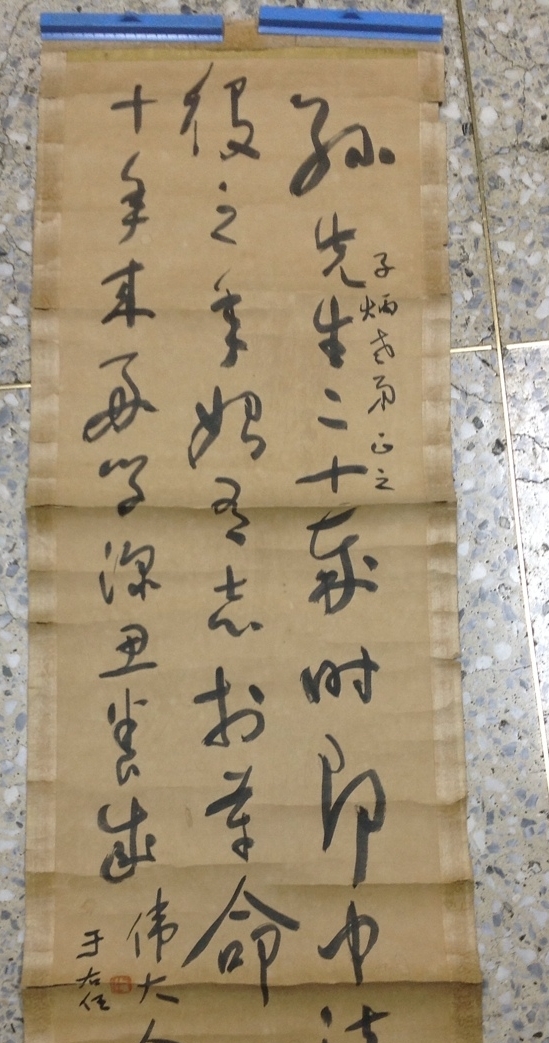 子炳老弟正之
孫先生二十歲時即中法
役之年始有志於革命
十年來為學深思養成
偉大人
于右任